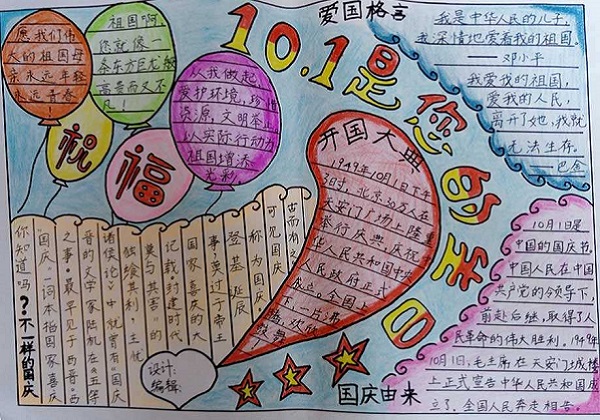 爱国格言
10.1是您的生日
愿我们伟
大的祖国母
亲永远年轻
永远青春！
祖国啊
你就像一
条东方巨龙般
高贵而又不
凡！
从我做起，
爱护环境，珍惜
资源，文明举止
以实际行动为
祖国增添
光彩。
祝
福
我是中华人民的儿子，
我深情地爱着我的祖国。
——邓小平
我爱我的祖国，
爱我的人民，
离开了她，我就
无法生存。
巴金
开国大典
1949年10月1日下午
3时，北京30万人在
天安门广场上隆重
举行庆典，庆祝中
华人民共和国中央
人民政府正式
成立。全国上
下，一片沸
腾，欢欣
鼓舞
你知道吗？不一样的国庆
“国庆”一词本指国家喜庆
之事，最早见于西晋。西
晋的文学家陆机在《五等
诸侯论》中就曾有“国庆
独飨其利 主忧
莫与共害”的
记载封建时代
国家喜庆的大
事，莫过于帝王
登基 诞辰
称为国庆。
可见国庆
古而有之
设计：
编辑：
国庆由来
10月1日是
中国的国庆节。
中国人民在中国
共产党的领导下，
前赴后继，取得了人
民革命的伟大胜利。1949年
10月1日，毛主席在天安门城楼
上正式宣告中华人民共和国成
立了，全国人民奔走相告。